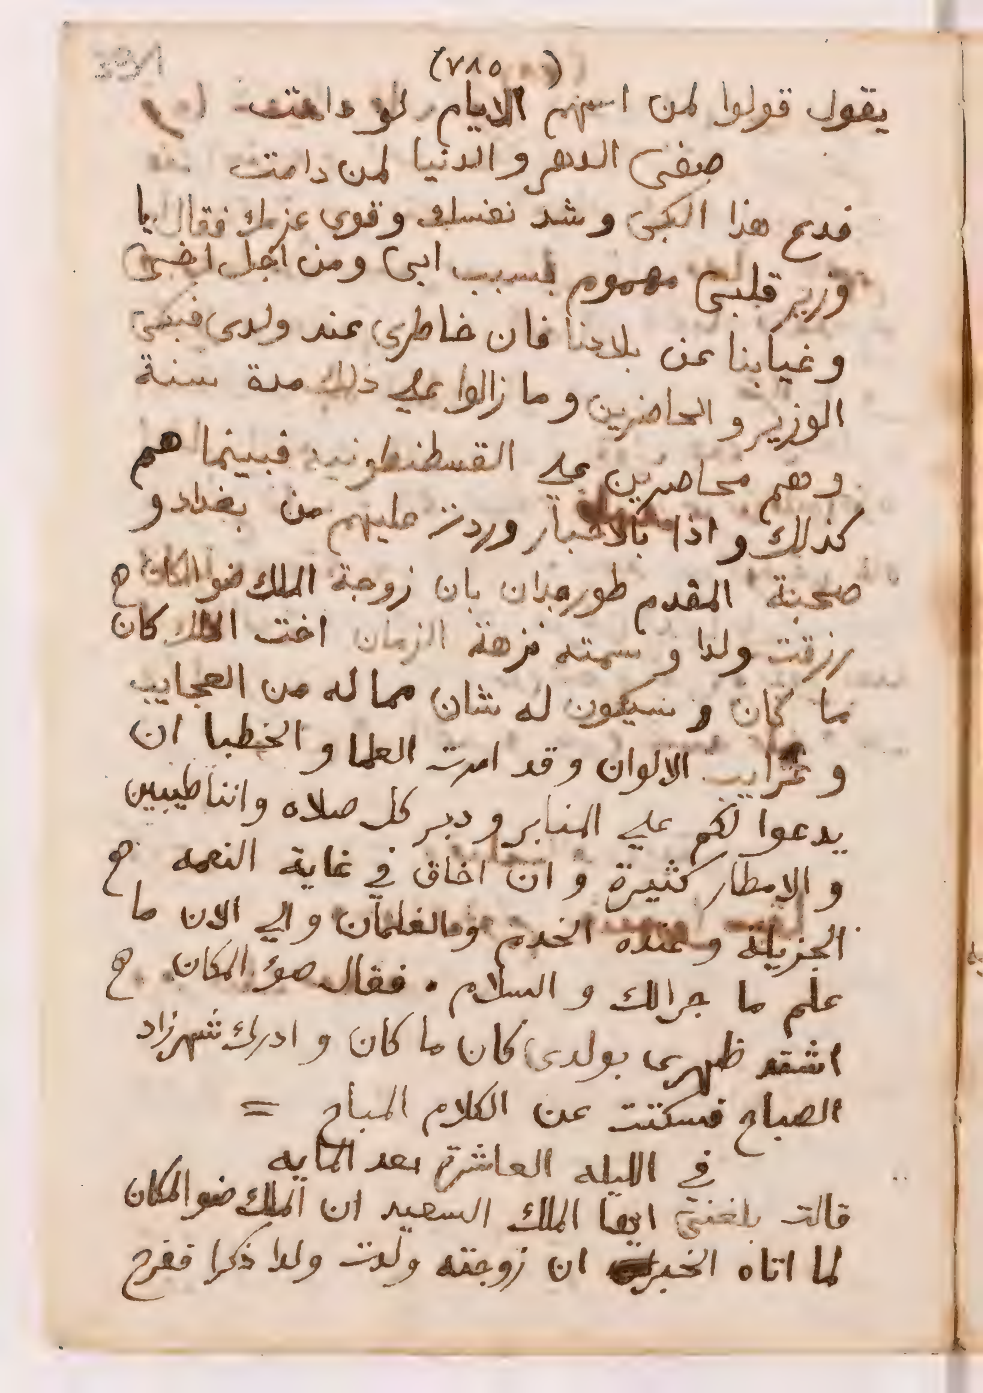 (٧٨٥)
يقول قولوا لمن اسهم الايام لو دامت
صفى الدهر والدنيا لمن دامت
فدع هذا البكى وشد نفسك وقوى عزمك فقال يا
وزير قلبى مهموم بسبب ابى ومن اجل اختى
وغيابنا عن بلادنا فان خاطرى عند ولدى فبكى
الوزير والحاضرين وما زالوا علي ذلك مدة سنة
وهم محاصرين علي القسطنطونيه فبينما هم
كذلك واذا بالاخبار وردت عليهم من بغداد و
صحبة المقدم بان زوجة الملك ضو المكان
رزقت ولدا وسمته نزهة الزمان اخت الملك كان
ما كان وسيكون له شان مما له من العجايب
وغرايب الالوان وقد امرت العلما والخطبا ان
يدعوا لكم علي المنابر ودبر كل صلاه واننا طيبين
والامطار كثيرة وان اخاق في غاية النعمه
الجزيلة وعنده الخدم والغلمان والي الان ما
علم ما جرالك والسلام . فقال ضوء المكان
اشتد ظهرى بولدى كان ما كان وادرك شهرزاد
الصباح فسكتت عن الكلام المباح =
في الليله العاشرة بعد المايه
قالت بلغنى ايها الملك السعيد ان الملك ضو المكان
لما اتاه الخبر ان زوجته ولدت ولدا ذكرا ففرح